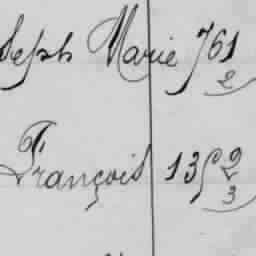 seph Marie 761
2
François 1359
3